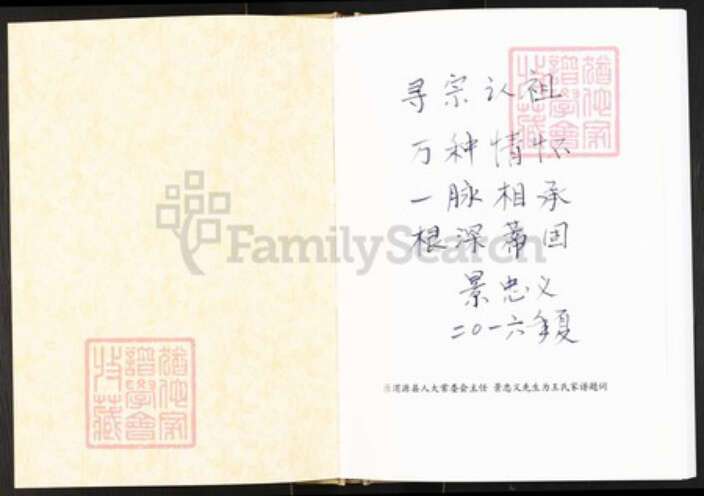 寻宗认祖
万种情怀
一脉相承
根深蒂固
景忠义
二〇一六年夏
渭源县人大常委会主任 景忠义先生为王氏家谱题词
FamilySearch
猶他家
譜學會
特藏
猶他家
譜學會
特藏